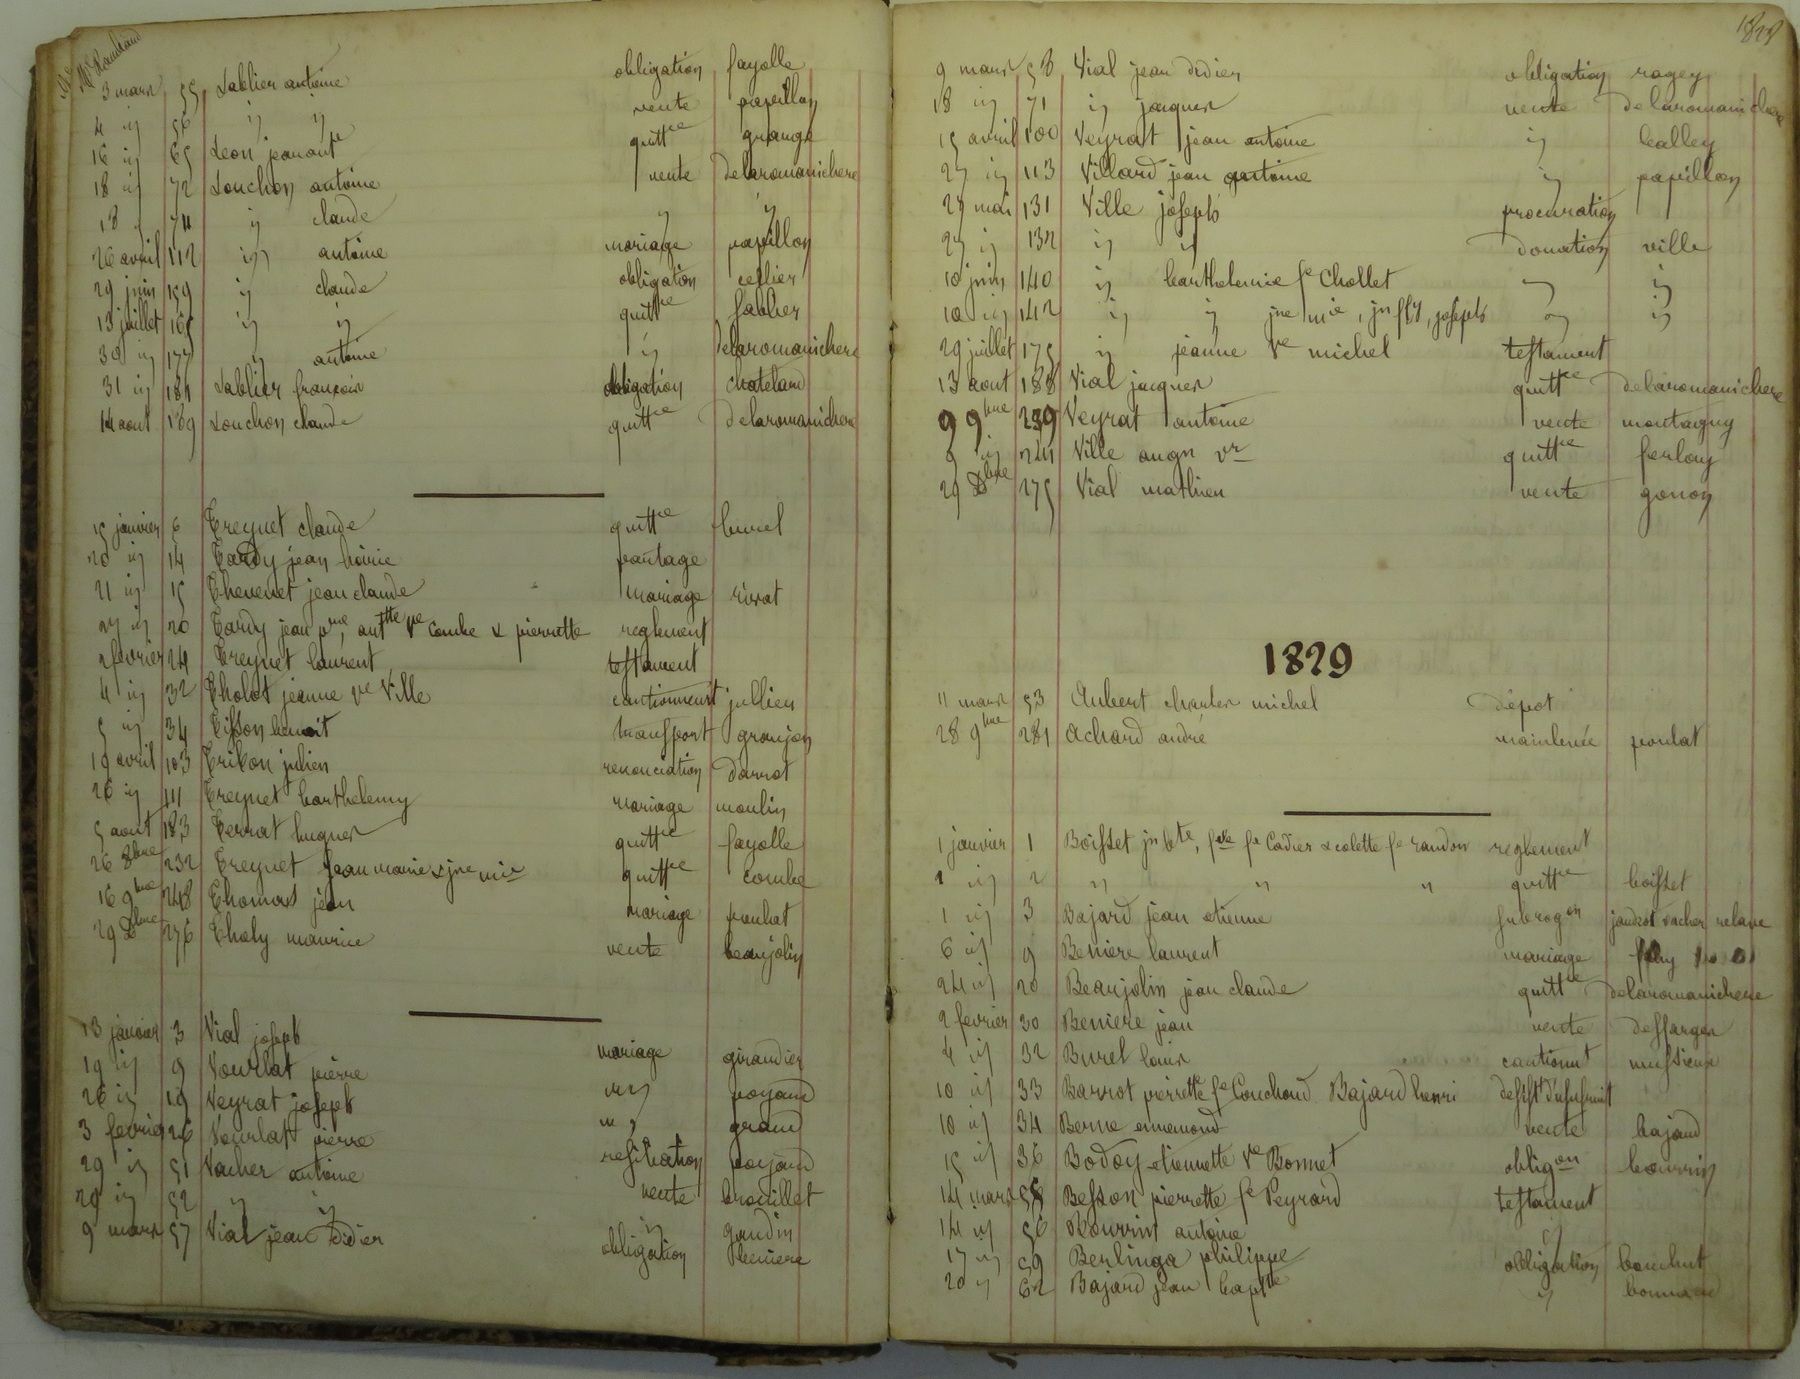 3 mars 55 Sablier antoine obligation fayolle
4 ij 56 ij ij vente papillon
16 ij 65 Leon jean ant quitt^ce grange
18 ij 72 Souchon antoine vente delaromanichere
18 ij 74 ij claude ij ij
26 avril 112 ij antoine mariage papillon
29 juin 159 ij claude obligation cellier
13 juillet 165 ij ij quitt^ce sablier
30 ij 177 ij antoine ij delaromanichere
31 ij 184 Sablier françois obligation chateland
14 aout 189 Souchon claude quitt^ce delaromanichere
15 janvier 6 Treynet claude quitt^ce burel
20 ij 14 Tardy jean partage
21 ij 15 Thevenet jean claude mariage rivat
27 ij 20 Tardy jean p^rre, ant^tte v^e Combe & pierrette reglement
2 fevrier 24 Treynet laurent testament
4 ij 32 Tholot jeanne v^e Ville cautionnement jullien
5 ij 34 Tisson benoit transport granjon
19 avril 103 Tricon julien renonciation darrot
26 ij 111 Treynet barthelemy mariage moulin
5 aout 183 Terrat hugues quitt^ce fayolle
26 8^bre 232 Treynet jean marie & jne mie quitt^ce combe
16 9^bre 248 Thomas jean mariage
29 D^bre 276 Tholy maurice vente beaujolin
13 janvier 3 Vial joseph mariage giraudier
19 ij 9 Vourlat pierre ij poyard
26 ij 19 Veyrat joseph ij grand
3 fevrier 26 Vourlat pierre resiliation poyard
29 ij 51 Vacher antoine vente brouillet
29 ij 52 ij ij ij gaudin
9 mars 57 Vial jean Didier obligation beniere
1828
9 mars 58 Vial jean didier obligation rogey
18 ij 71 ij jacques vente delaromanichere
15 avril 100 Veyrat jean antoine ij balley
27 ij 113 Villard jean antoine ij papillon
27 mai 131 Ville joseph procuration
27 ij 132 ij ij donation ville
10 juin 140 ij barthelemie f^e Chollet ij ij
10 ij 142 ij ij jne mie, jn f^is, joseph ij ij
29 juillet 175 ij jeanne V^e michel testament
13 aout 188 Vial jacques quitt^ce delaromanichere
9 9^bre 239 Veyrat antoine vente montagny
9 ij 244 Ville augn v^r quitt^ce ferlay
29 D^bre 275 Vial mathieu vente gonon
1829
11 mars 53 Aubert charles michel dépot
28 9^bre 281 Achard andré mainlevée poulat
1 janvier 1 Boisset jn b^te, f^e Cadier & colette f^e randon reglement
1 ij 2 " " " quitt^ce boisset
1 ij 3 Bajard jean etienne subrog^on vacher relave
6 ij 9 Beniere laurent mariage
24 ij 20 Beaujolin jean claude quitt^ce delaromanichere
2 fevrier 30 Beniere jean vente dessarges
4 ij 32 Burel louis cautionnt messieux
10 ij 33 Barrot pierrette f^e Couchoud Bajard henri desist^t d'usufruit
10 ij 34 Berne ennemond vente bajard
15 ij 36 Bodoy etiennette V^e Bonnet oblig^on bourrin
14 mars 55 Besson pierrette f^e Peyrard testament
14 ij 56 Bourrin antoine ij
17 ij 59 Berlinga philippe obligation bouchut
20 ij 62 Bajard jean bapt^te ij bonnard